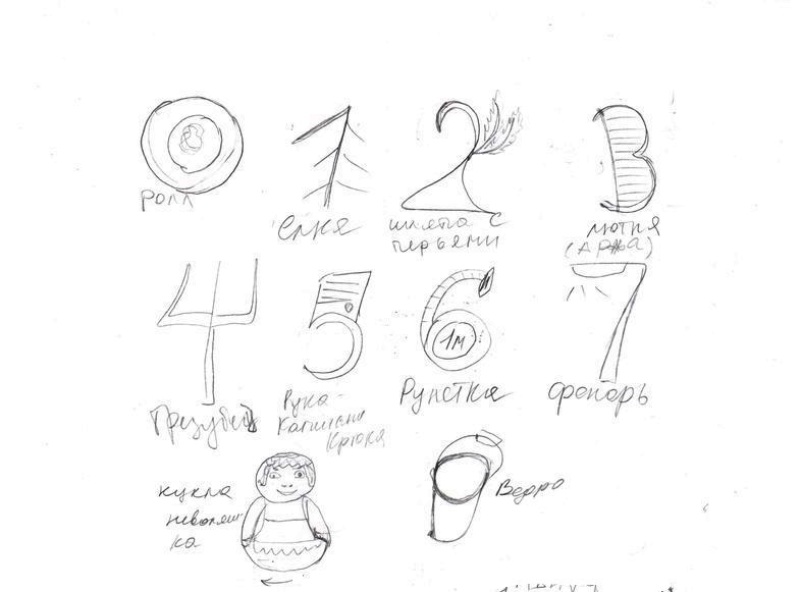 ролл
ёлка
шляпа с
перьями
лютня
(Арфа)
1м
Трезубец
Рука-
капитана
Крюка
Рулетка
фонарь
кукла
неваляш-
ка
Ведро